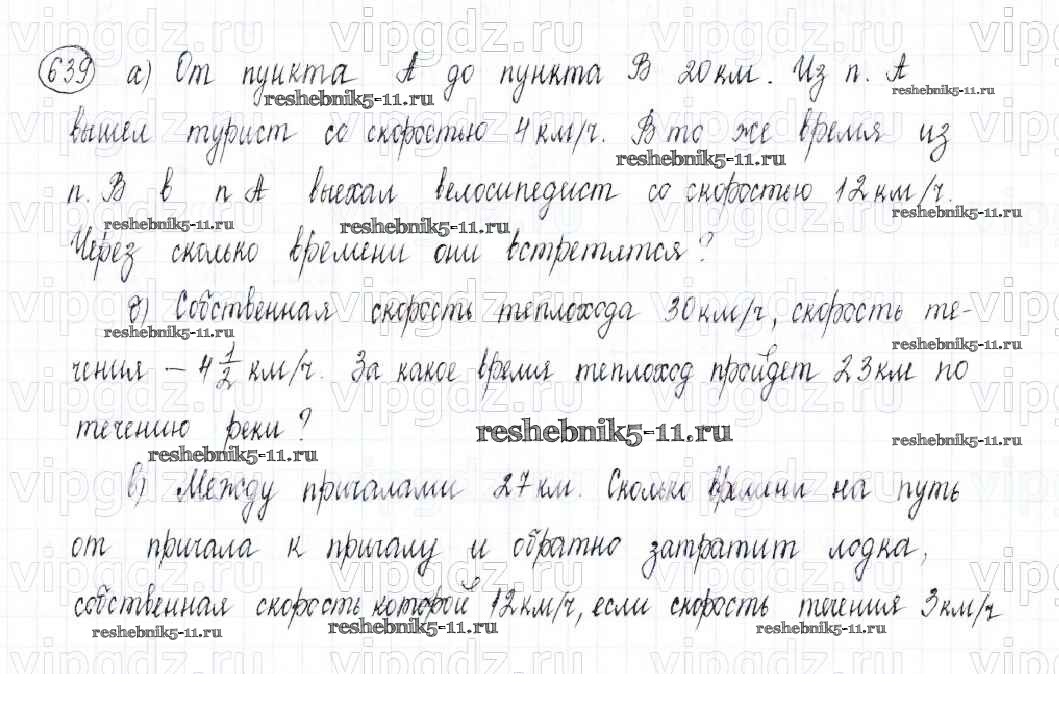 639 а) От пункта А до пункта В 20 км. Из п. А
вышел турист со скоростью 4 км/ч. В то же время из
п. В в п А выехал велосипедист со скоростью 12 км/ч.
Через сколько времени они встретятся?
б) Собственная скорость теплохода 30 км/ч, скорость те-
чения - 4 1/2 км/ч. За какое время теплоход пройдет 23 км по
течению реки?
в) Между причалами 27 км. Сколько времени на путь
от причала к причалу и обратно затратит лодка,
собственная скорость которой 12 км/ч, если скорость течения 3 км/ч
reshebnik5-11.ru
vipgdz.ru